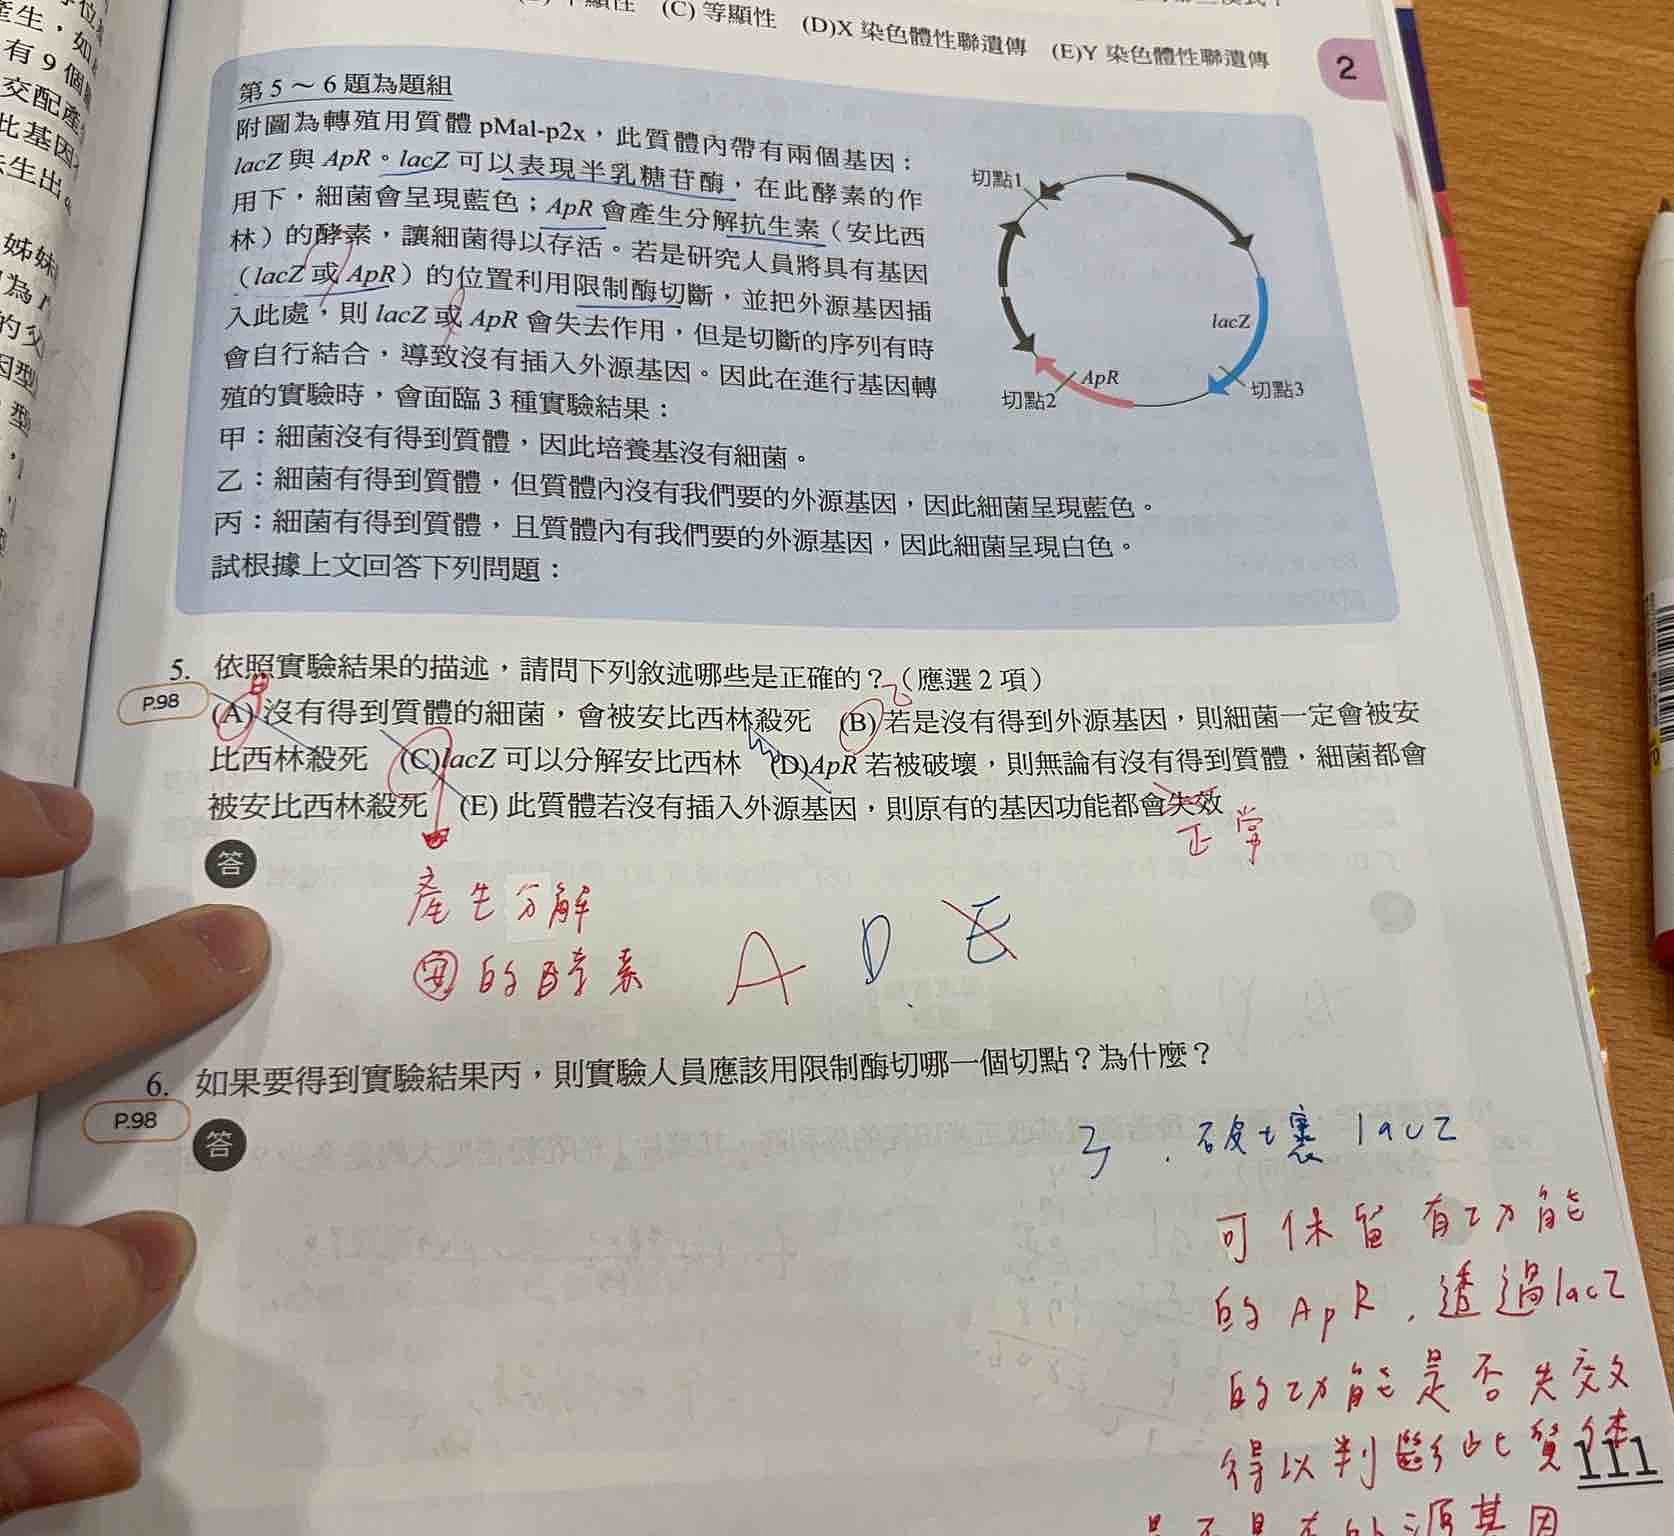 (C) 等顯性 (D)X 染色體性聯遺傳 (E)Y 染色體性聯遺傳
2
產生,如
有 9 個
交配產
比基因
生出。
姊妹
為 r
的父
因型
型
第 5 ~ 6 題為題組
附圖為轉殖用質體 pMal-p2x,此質體內帶有兩個基因:
lacZ 與 ApR。lacZ 可以表現半乳糖苷酶,在此酵素的作
用下,細菌會呈現藍色;ApR 會產生分解抗生素(安比西
林)的酵素,讓細菌得以存活。若是研究人員將具有基因
(lacZ 或 ApR)的位置利用限制酶切斷,並把外源基因插
入此處,則 lacZ 或 ApR 會失去作用,但是切斷的序列有時
會自行結合,導致沒有插入外源基因。因此在進行基因轉
殖的實驗時,會面臨 3 種實驗結果:
甲:細菌沒有得到質體,因此培養基沒有細菌。
乙:細菌有得到質體,但質體內沒有我們要的外源基因,因此細菌呈現藍色。
丙:細菌有得到質體,且質體內有我們要的外源基因,因此細菌呈現白色。
試根據上文回答下列問題:
切點1
lacZ
ApR
切點2
切點3
5. 依照實驗結果的描述,請問下列敘述哪些是正確的?(應選 2 項)
P.98
(A) 沒有得到質體的細菌,會被安比西林殺死 (B) 若是沒有得到外源基因,則細菌一定會被安
比西林殺死 (C)lacZ 可以分解安比西林 (D)ApR 若被破壞,則無論有沒有得到質體,細菌都會
被安比西林殺死 (E) 此質體若沒有插入外源基因,則原有的基因功能都會失效
正常
答
產生分解
安的酵素
A D E
6. 如果要得到實驗結果丙,則實驗人員應該用限制酶切哪一個切點?為什麼?
P.98
答
3 . 破壞 lacZ
可保留有功能
的 ApR,透過lacZ
的功能是否失效
得以判斷此質體
是否具有外源基因
111